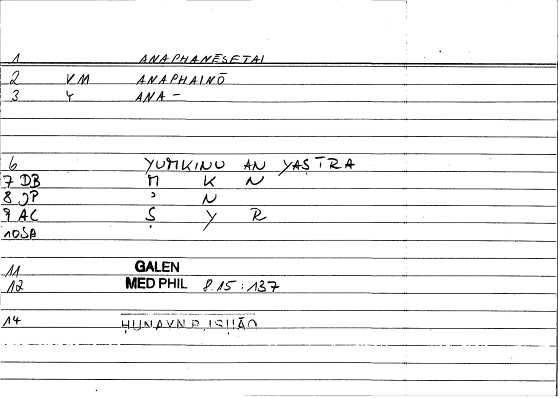 1 ANAPHANĒSETAI
2 VM ANAPHAINŌ
3 Y ANA-
6 YUMKINU AN YASTRA
7 DB M K N
8 JP ʾ N
9 AC S Y R
10 SA
11 GALEN
12 MED PHIL 8.15:137
14 ḤUNAYN B ISḤĀQ